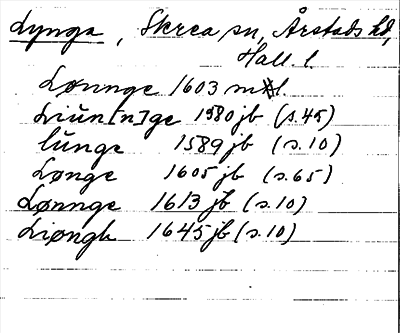 Lynga, Skrea sn, Årstads hd,
Hall. l.
Lønnge 1603 ml.
Liun[n]ge 1580 jb (s. 45)
lunge 1589 jb (s. 10)
Lønge 1605 jb (s. 65)
Lønnge 1613 jb (s. 10)
Liøngh 1645 jb (s. 10)